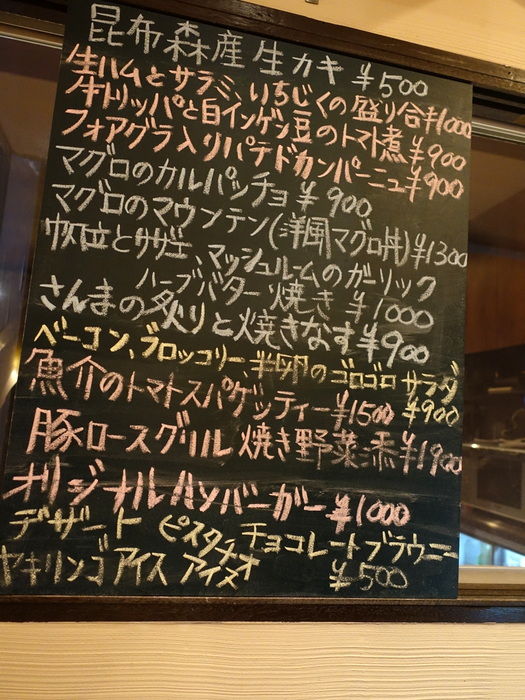 昆布森産生カキ ¥500
生ハムとサラミ、いちじくの盛り合 ¥1000
牛トリッパと白インゲン豆のトマト煮 ¥900
フォアグラ入りパテドカンパーニュ ¥900
マグロのカルパッチョ ¥900
マグロのマウンテン(洋風マグロ丼) ¥1300
帆立とサザエ、マッシュルームのガーリック
ハーブバター焼き ¥1000
さんまの炙りと焼きなす ¥900
ベーコン、ブロッコリー、半卵のゴロゴロサラダ
¥900
魚介のトマトスパゲッティー ¥1500
豚ロースグリル 焼き野菜添 ¥1900
オリジナルハンバーガー ¥1000
デザート ピスタチオ チョコレートブラウニー
ヤキリンゴアイス アイス ¥500